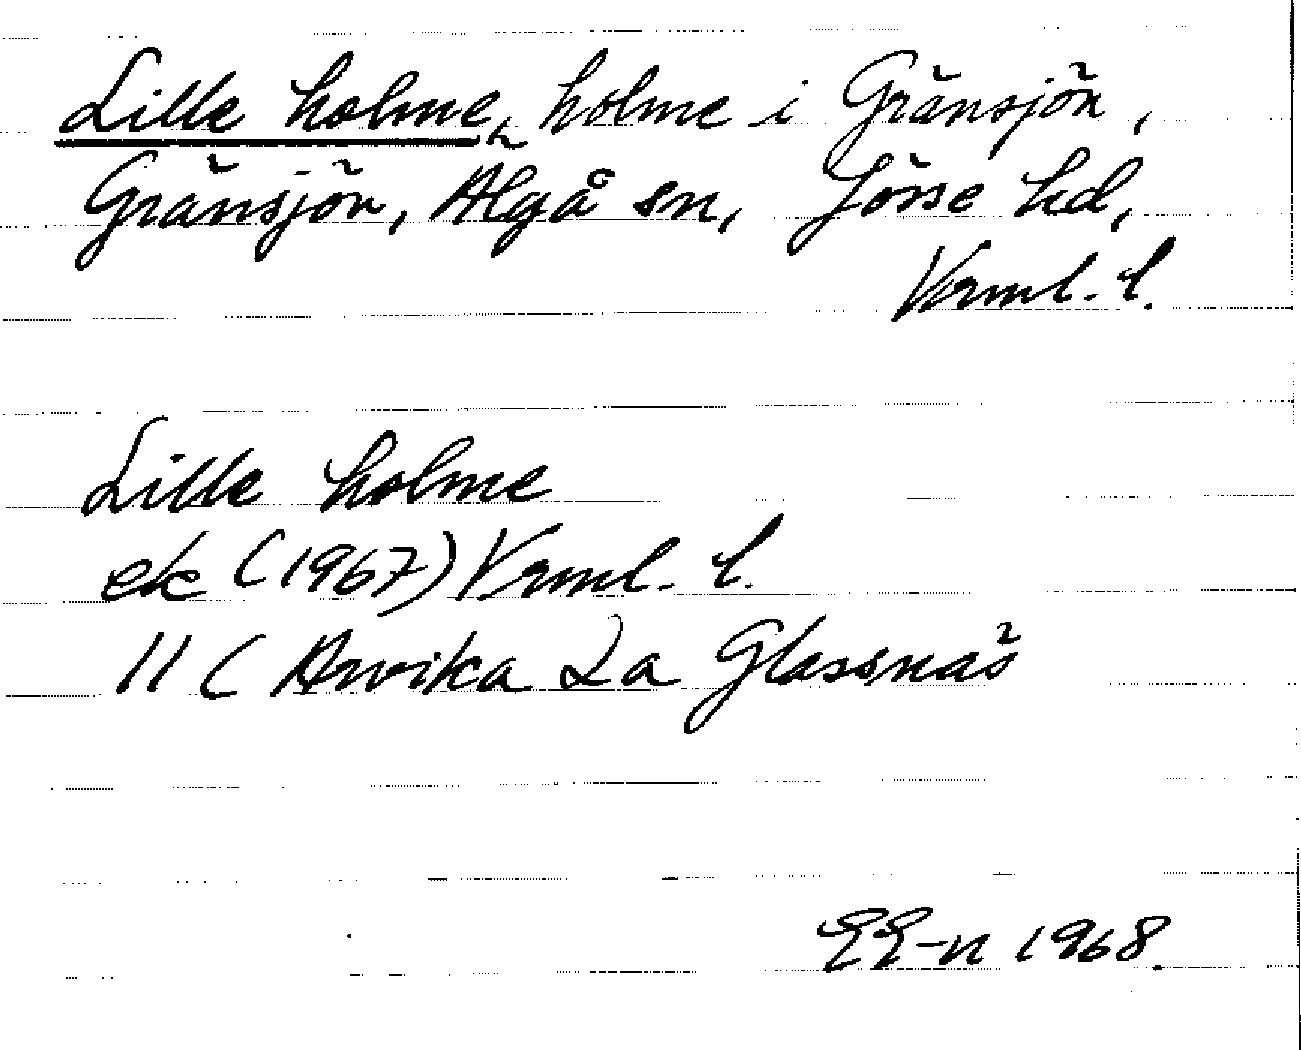 Lille holme, holme i Gränsjön,
Gränsjön, Älgå sn, Jösse hd,
Vrml. l.
Lille holme
ek (1967) Vrml. l.
11 C Arvika La Glassnäs
EE-n 1968.